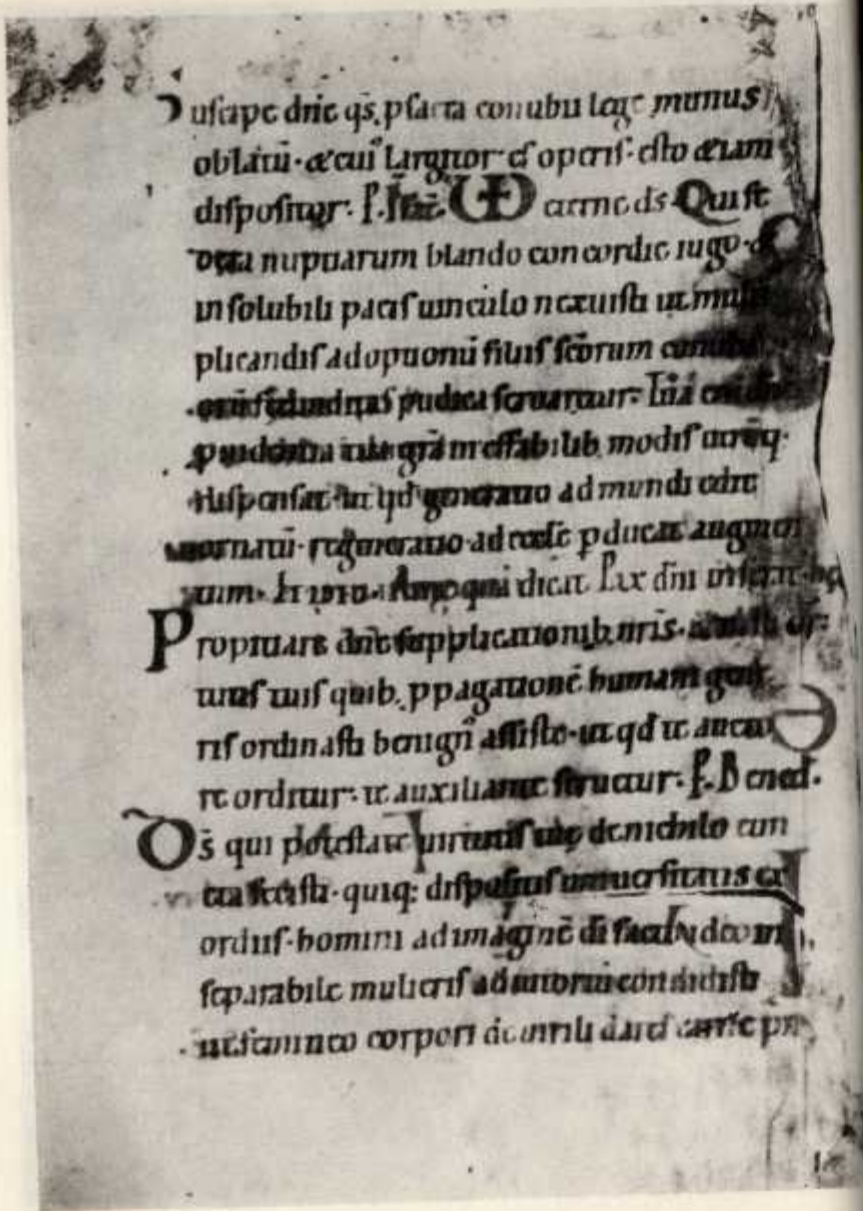 uscipe dn̄e q̄s, p sacra conubii lege munus
oblatū · & cui' largitor es operis · esto & iam
dispositor · P. VD aeterne d̄s Qui fe
dera nuptiarum blando concordie iugo · &
insolubili pacis uinculo nexuisti ut multi
plicandis adoptionū filiis sc̄orum
fecunditas pudica seruaretur · Tua
grā ineffabilib. modis utrūq·
dispensat · ut qđ generatio ad mundi edit
ornatū · regeneratio ad eccl̄e pducat augmen
tum · qui dicat Pax dn̄i
Propitiare dn̄e supplicationib. nr̄is ·
tutis tuis quib. ppagationē humani gene
ris ordinasti benign' assiste · ut qđ te aucto
re orditur · te auxiliante seruetur · P. Bened.
Ds̄ qui potestate uirtutis tue de nichilo cun
cta fecisti · quiq: dispositis uniuersitatis ex
ordiis · homini ad imaginē di facto ideo in
separabile mulieris adiutoriū condidisti
ut femineo corpori de uirili dares carne pri